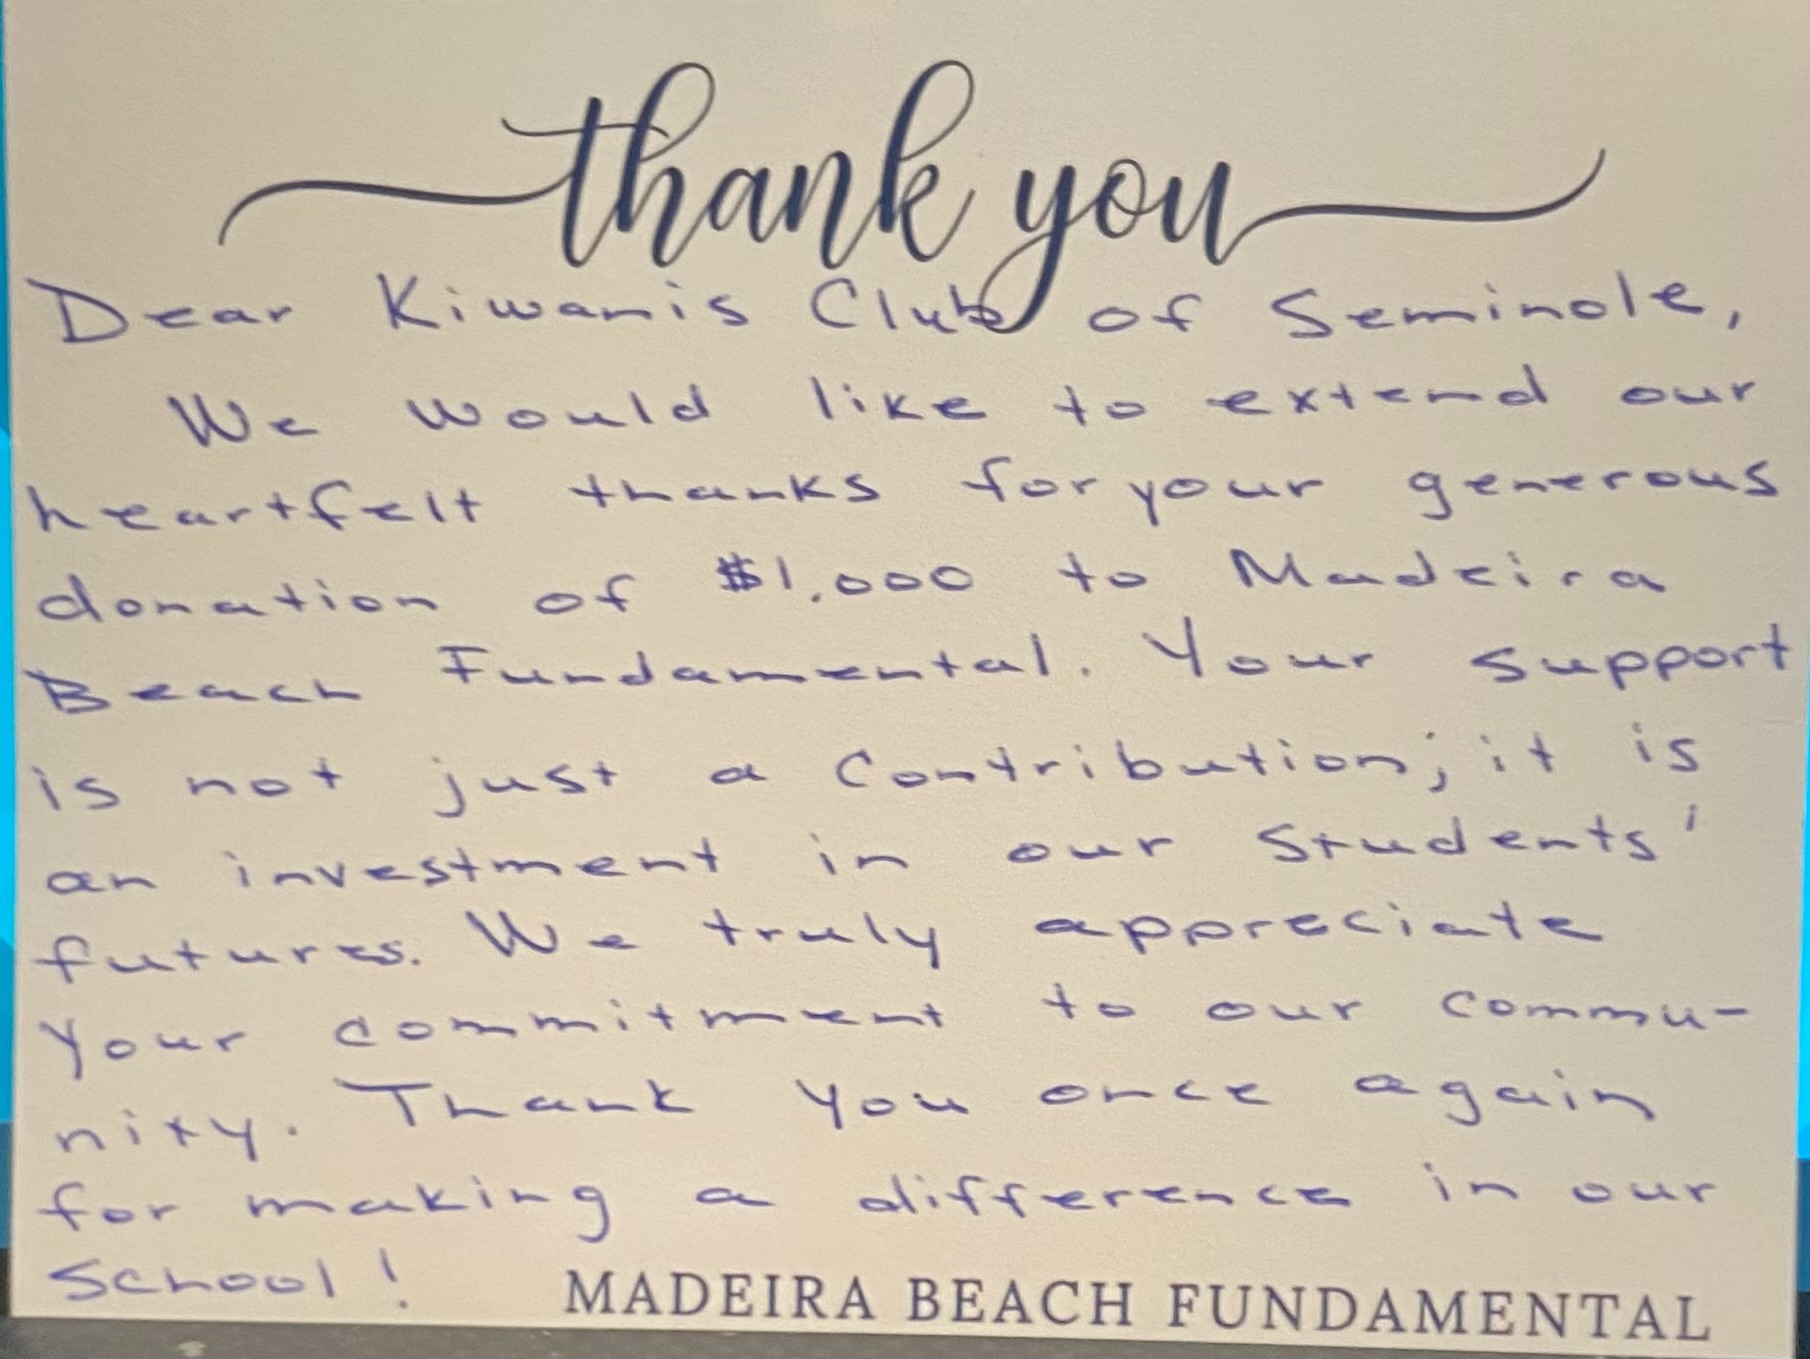 thank you
Dear Kiwanis Club of Seminole,
We would like to extend our
heartfelt thanks for your generous
donation of $1,000 to Madeira
Beach Fundamental. Your support
is not just a contribution; it is
an investment in our students'
futures. We truly appreciate
your commitment to our commu-
nity. Thank you once again
for making a difference in our
school!
MADEIRA BEACH FUNDAMENTAL